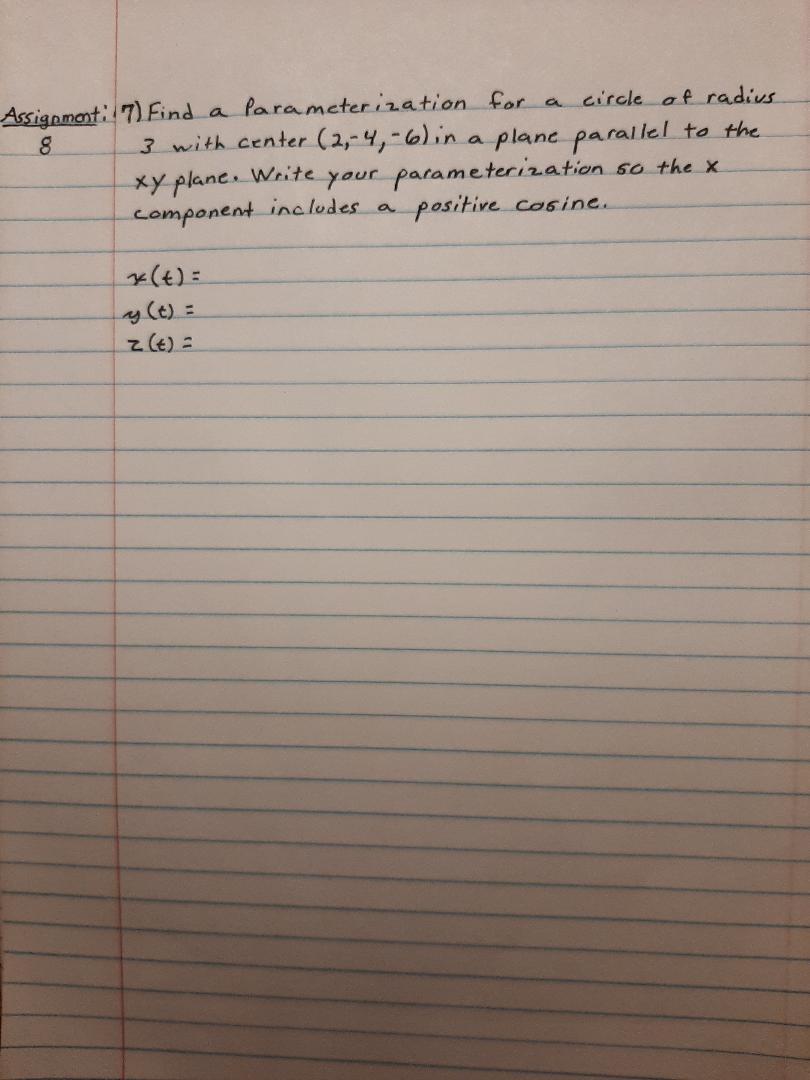 Assignment: 7) Find a Parameterization for a circle of radius
8 3 with center (2,-4,-6) in a plane parallel to the
xy plane. Write your parameterization so the x
component includes a positive cosine.
x(t) =
y(t) =
z(t) =